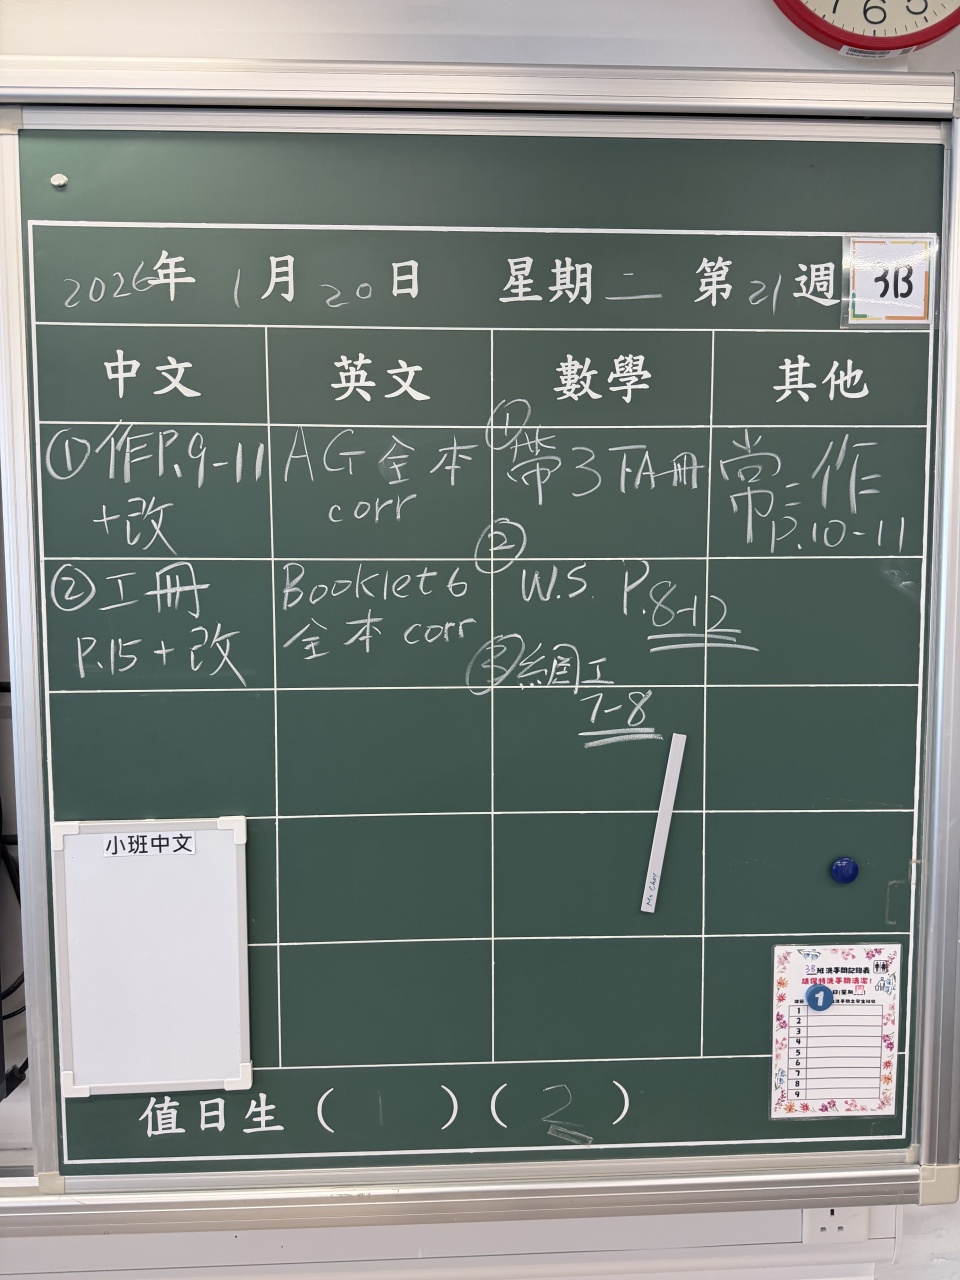 7 6 5
2026年 1月 20日 星期二 第21週 3B
中文 英文 數學 其他
①作P.9-11
+改
AG全本
corr
①帶3下A冊
常=作
P.10-11
②工冊
P.15+改
Booklet 6
全本 corr
②
W.S. P.8-12
③網工
7-8
小班中文
3B班洗手間記錄表
請保持洗手間清潔!
1
1
2
3
4
5
6
7
8
9
值日生 ( 1 ) ( 2 )